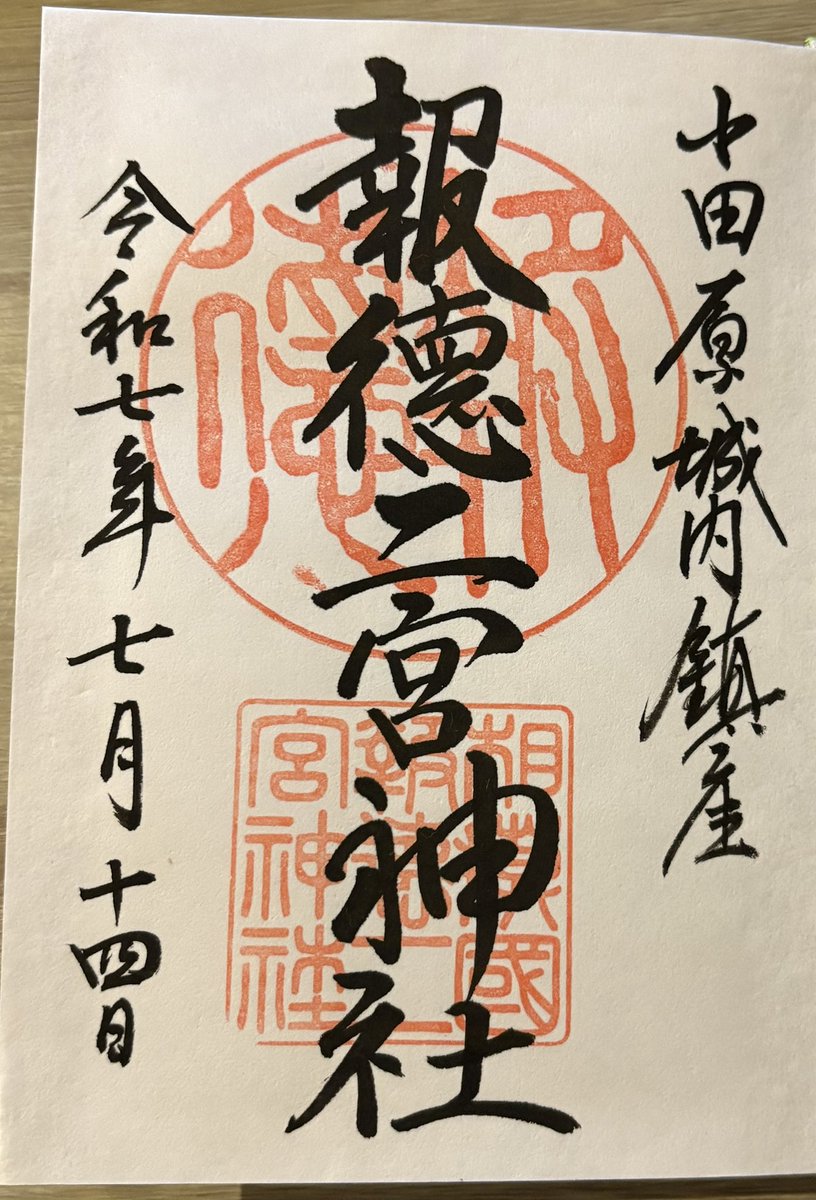 小田原城内鎮座
報徳二宮神社
令和七年七月十四日
相模國
報徳二
宮神社